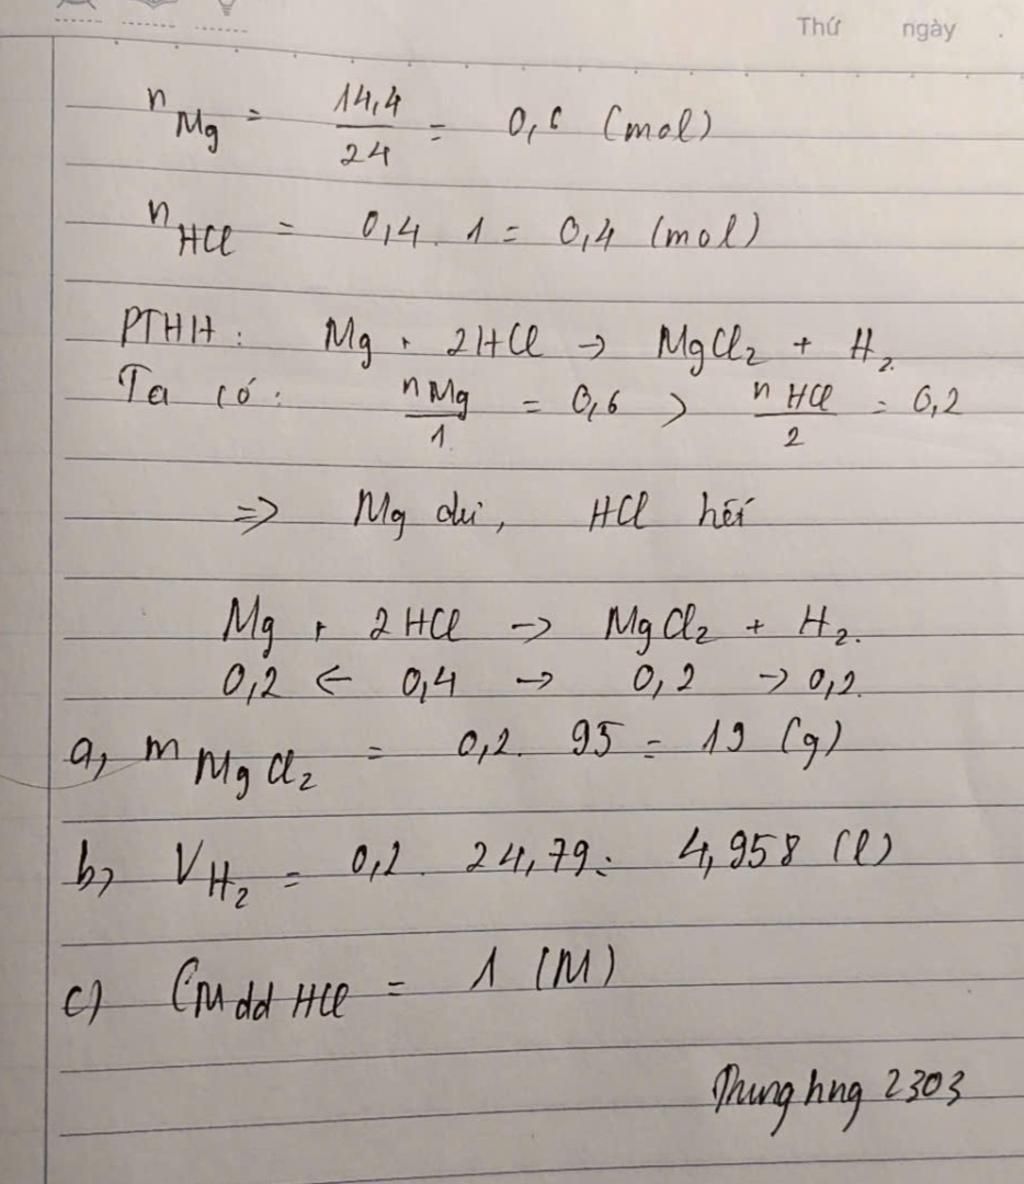 Thứ ngày .
n Mg = 14,4/24 = 0,6 (mol)
n HCl = 0,4 . 1 = 0,4 (mol)
PTHH : Mg + 2HCl → MgCl₂ + H₂
Ta có : n Mg/1 = 0,6 > n HCl/2 = 0,2
=> Mg dư, HCl hết
Mg + 2HCl → MgCl₂ + H₂.
0,2 ← 0,4 → 0,2 → 0,2
a, m MgCl₂ = 0,2 . 95 = 19 (g)
b, V H₂ = 0,2 . 24,79 = 4,958 (l)
c) CM dd HCl = 1 (M)
2303